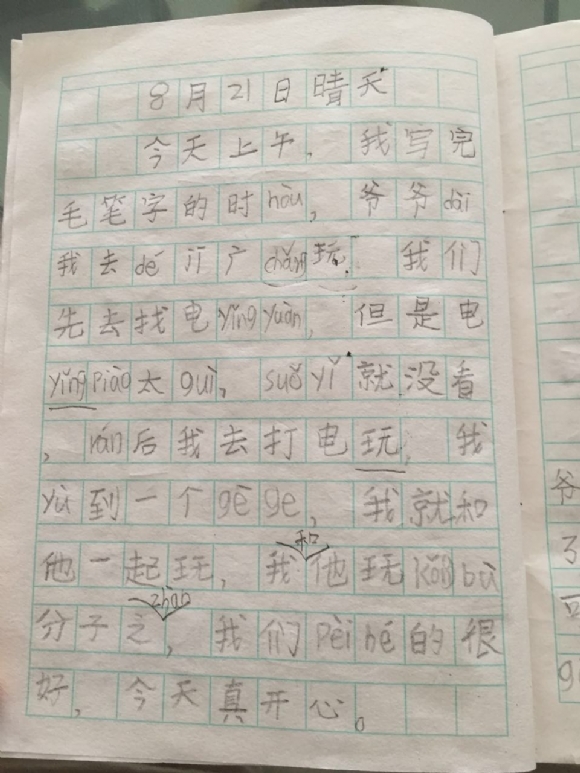 8月21日晴天
今天上午，我写完
毛笔字的时hòu，爷爷dài
我去dé jī广chǎng玩，我们
先去找电yǐng yuàn，但是电
yǐng piào太guì，suǒ yǐ就没看
，rán后我去打电玩，我
yù到一个gē ge，我就和
他一起玩，我和他玩kǒng bù
分子之zhàn，我们pèi hé的很
好，今天真开心。
爷
了